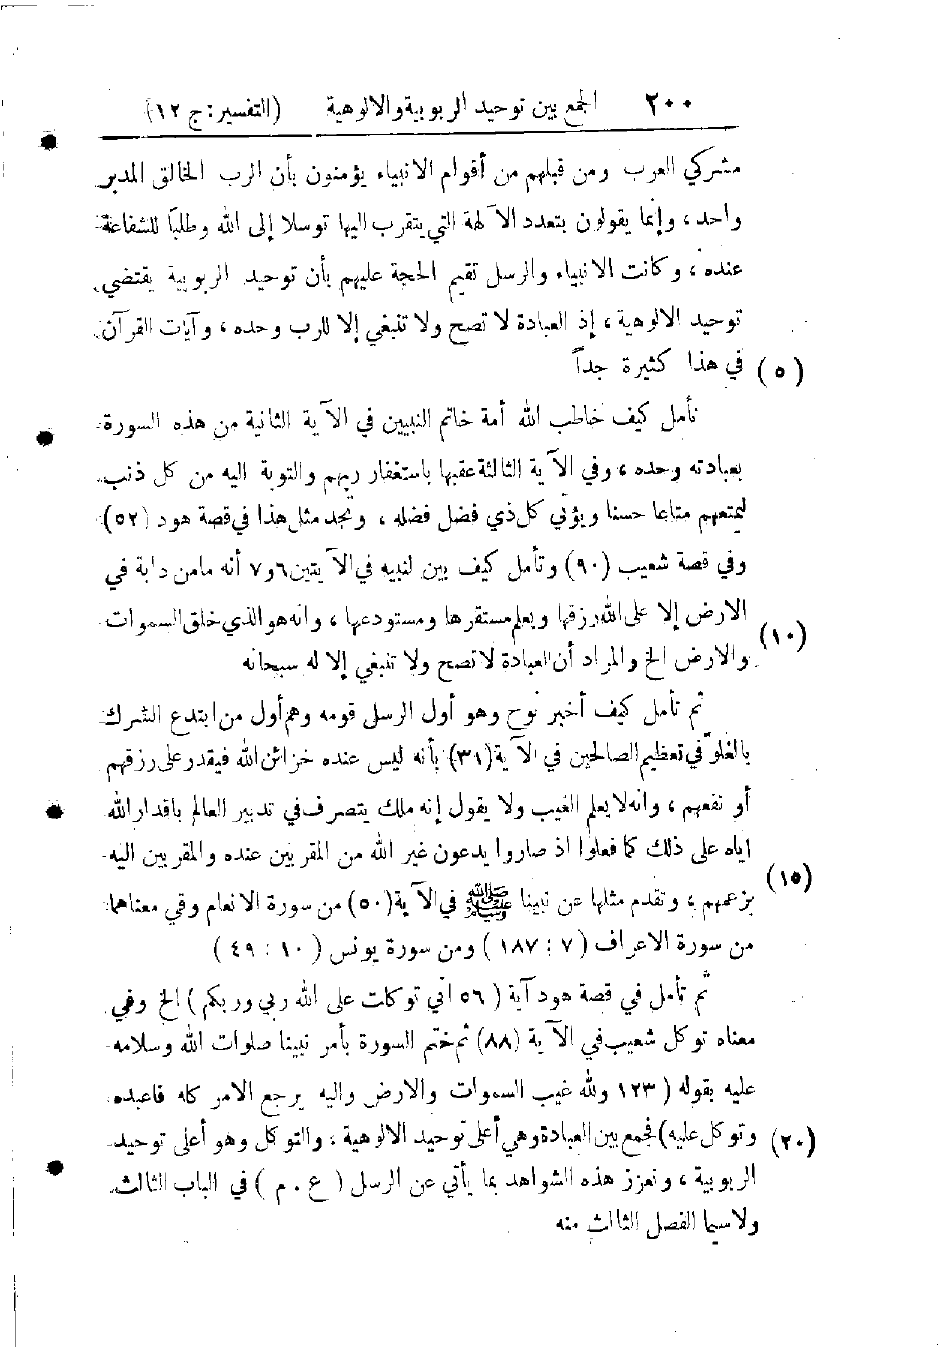 ٢٠٠ الجمع بين توحيد الربوبية والالوهية (التفسير: ج ١٢)
مشركي العرب ومن قبلهم من أقوام الانبياء يؤمنون بأن الرب الخالق المدبر
واحد، وإنما يقولون بتعدد الآلهة التي يتقرب اليها توسلا إلى الله وطلبًا للشفاعة
عنده، وكانت الانبياء والرسل تقيم الحجة عليهم بأن توحيد الربوبية يقتضي
توحيد الالوهية، إذ العبادة لا تصح ولا تنبغي إلا للرب وحده، وآيات القرآن
في هذا كثيرة جداً (٥)
تأمل كيف خاطب الله أمة خاتم النبيين في الآية الثانية من هذه السورة
بعبادته وحده، وفي الآية الثالثة عقبها باستغفار ربهم والتوبة اليه من كل ذنب
ليمتعهم متاعا حسنا ويؤتي كل ذي فضل فضله، وتجد مثل هذا في قصة هود (٥٢)
وفي قصة شعيب (٩٠) وتأمل كيف بين لنبيه في الآيتين ٦و٧ أنه مامن دابة في
الارض إلا على الله رزقها ويعلم مستقرها ومستودعها، وانه هو الذي خلق السموات
والارض الخ والمراد أن العبادة لا تصح ولا تنبغي إلا له سبحانه (١٠)
ثم تأمل كيف أخبر نوح وهو أول الرسل قومه وهم أول من ابتدع الشرك
بالغلوّ في تعظيم الصالحين في الآية (٣١) بأنه ليس عنده خزائن الله فيقدر على رزقهم
أو نفعهم، وانه لا يعلم الغيب ولا يقول إنه ملك يتصرف في تدبير العالم باقدار الله
اياه على ذلك كما فعلوا اذ صاروا يدعون غير الله من المقربين عنده والمقربين اليه
بزعمهم، وتقدم مثلها عن نبينا ﷺ في الآية (٥٠) من سورة الانعام وفي معناهما (١٥)
من سورة الاعراف (٧ : ١٨٧) ومن سورة يونس (١٠ : ٤٩)
ثم تأمل في قصة هود آية (٥٦ اني توكلت على الله ربي وربكم) الخ وفي
معناه توكل شعيب في الآية (٨٨) ثم ختم السورة بأمر نبينا صلوات الله وسلامه
عليه بقوله (١٢٣ ولله غيب السموات والارض واليه يرجع الامر كله فاعبده
وتوكل عليه) فجمع بين العبادة وهي أعلى توحيد الالوهية، والتوكل وهو أعلى توحيد (٢٠)
الربوبية، ونعزز هذه الشواهد بما يأتي عن الرسل (ع . م) في الباب الثالث
ولا سيما الفصل الثالث منه